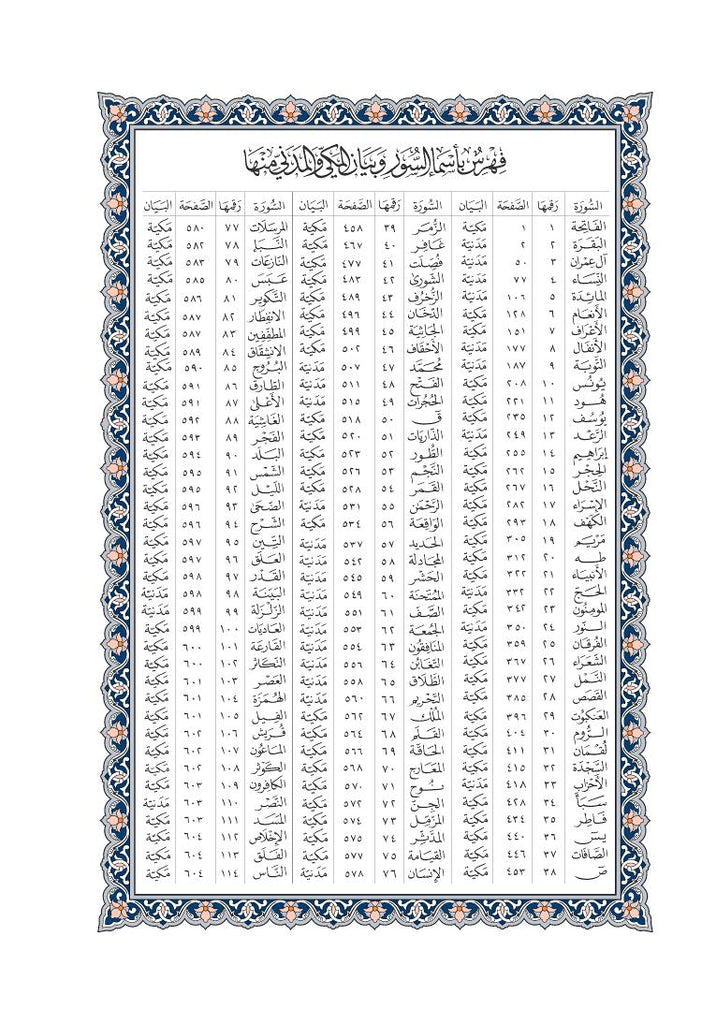 فِهْرِسٌ بِأَسْمَاءِ السُّوَرِ وَبَيَانِ المَكِّيِّ وَالمَدَنِيِّ مِنْهَا
السُّورَة رَقمُهَا الصَّفحَة البَيَان السُّورَة رَقمُهَا الصَّفحَة البَيَان السُّورَة رَقمُهَا الصَّفحَة البَيَان
الفَاتِحَة ١ ١ مَكيّة الزُّمَر ٣٩ ٤٥٨ مَكيّة المُرسَلَات ٧٧ ٥٨٠ مَكيّة
البَقَرَة ٢ ٢ مَدَنيّة غَافِر ٤٠ ٤٦٧ مَكيّة النَّبَإ ٧٨ ٥٨٢ مَكيّة
آل عِمْرَان ٣ ٥٠ مَدَنيّة فُصِّلَت ٤١ ٤٧٧ مَكيّة النَّازِعَات ٧٩ ٥٨٣ مَكيّة
النِّسَاء ٤ ٧٧ مَدَنيّة الشُّورَىٰ ٤٢ ٤٨٣ مَكيّة عَبَسَ ٨٠ ٥٨٥ مَكيّة
المَائِدَة ٥ ١٠٦ مَدَنيّة الزُّخْرُف ٤٣ ٤٨٩ مَكيّة التَّكْوير ٨١ ٥٨٦ مَكيّة
الأَنْعَام ٦ ١٢٨ مَكيّة الدُّخَان ٤٤ ٤٩٦ مَكيّة الانفِطَار ٨٢ ٥٨٧ مَكيّة
الأَعْرَاف ٧ ١٥١ مَكيّة الجَاثِيَة ٤٥ ٤٩٩ مَكيّة المُطَفِّفِين ٨٣ ٥٨٧ مَكيّة
الأَنْفَال ٨ ١٧٧ مَدَنيّة الأَحْقَاف ٤٦ ٥٠٢ مَكيّة الانْشِقَاق ٨٤ ٥٨٩ مَكيّة
التَّوْبَة ٩ ١٨٧ مَدَنيّة مُحَمَّد ٤٧ ٥٠٧ مَدَنيّة البُرُوج ٨٥ ٥٩٠ مَكيّة
يُونُس ١٠ ٢٠٨ مَكيّة الفَتْح ٤٨ ٥١١ مَدَنيّة الطَّارِق ٨٦ ٥٩١ مَكيّة
هُود ١١ ٢٢١ مَكيّة الحُجُرَات ٤٩ ٥١٥ مَدَنيّة الأَعْلَىٰ ٨٧ ٥٩١ مَكيّة
يُوسُف ١٢ ٢٣٥ مَكيّة قٓ ٥٠ ٥١٨ مَكيّة الغَاشِيَة ٨٨ ٥٩٢ مَكيّة
الرَّعْد ١٣ ٢٤٩ مَدَنيّة الذَّارِيَات ٥١ ٥٢٠ مَكيّة الفَجْر ٨٩ ٥٩٣ مَكيّة
إِبْرَاهِيم ١٤ ٢٥٥ مَكيّة الطُّور ٥٢ ٥٢٣ مَكيّة البَلَد ٩٠ ٥٩٤ مَكيّة
الحِجْر ١٥ ٢٦٢ مَكيّة النَّجْم ٥٣ ٥٢٦ مَكيّة الشَّمْس ٩١ ٥٩٥ مَكيّة
النَّحْل ١٦ ٢٦٧ مَكيّة القَمَر ٥٤ ٥٢٨ مَكيّة اللَّيْل ٩٢ ٥٩٥ مَكيّة
الإِسْرَاء ١٧ ٢٨٢ مَكيّة الرَّحْمَٰن ٥٥ ٥٣١ مَدَنيّة الضُّحَىٰ ٩٣ ٥٩٦ مَكيّة
الكَهْف ١٨ ٢٩٣ مَكيّة الوَاقِعَة ٥٦ ٥٣٤ مَكيّة الشَّرْح ٩٤ ٥٩٦ مَكيّة
مَرْيَم ١٩ ٣٠٥ مَكيّة الحَدِيد ٥٧ ٥٣٧ مَدَنيّة التِّين ٩٥ ٥٩٧ مَكيّة
طه ٢٠ ٣١٢ مَكيّة المُجَادلَة ٥٨ ٥٤٢ مَدَنيّة العَلَق ٩٦ ٥٩٧ مَكيّة
الأَنْبِيَاء ٢١ ٣٢٢ مَكيّة الحَشْر ٥٩ ٥٤٥ مَدَنيّة القَدْر ٩٧ ٥٩٨ مَكيّة
الحَجّ ٢٢ ٣٣٢ مَدَنيّة المُمْتَحنَة ٦٠ ٥٤٩ مَدَنيّة البَيّنَة ٩٨ ٥٩٨ مَدَنيّة
المؤمِنُون ٢٣ ٣٤٢ مَكيّة الصَّفّ ٦١ ٥٥١ مَدَنيّة الزّلزَلَة ٩٩ ٥٩٩ مَدَنيّة
النُّور ٢٤ ٣٥٠ مَدَنيّة الجُمُعَة ٦٢ ٥٥٣ مَدَنيّة العَاديَات ١٠٠ ٥٩٩ مَكيّة
الفُرقَان ٢٥ ٣٥٩ مَكيّة المُنَافِقُون ٦٣ ٥٥٤ مَدَنيّة القَارعَة ١٠١ ٦٠٠ مَكيّة
الشُّعَرَاء ٢٦ ٣٦٧ مَكيّة التَّغَابُن ٦٤ ٥٥٦ مَدَنيّة التَّكَاثُر ١٠٢ ٦٠٠ مَكيّة
النَّمْل ٢٧ ٣٧٧ مَكيّة الطَّلَاق ٦٥ ٥٥٨ مَدَنيّة العَصْر ١٠٣ ٦٠١ مَكيّة
القَصَص ٢٨ ٣٨٥ مَكيّة التَّحْرِيم ٦٦ ٥٦٠ مَدَنيّة الهُمَزَة ١٠٤ ٦٠١ مَكيّة
العَنكَبُوت ٢٩ ٣٩٦ مَكيّة المُلْك ٦٧ ٥٦٢ مَكيّة الفِيل ١٠٥ ٦٠١ مَكيّة
الرُّوم ٣٠ ٤٠٤ مَكيّة القَلَم ٦٨ ٥٦٤ مَكيّة قُرَيْش ١٠٦ ٦٠٢ مَكيّة
لُقْمَان ٣١ ٤١١ مَكيّة الحَاقَّة ٦٩ ٥٦٦ مَكيّة المَاعُون ١٠٧ ٦٠٢ مَكيّة
السَّجْدَة ٣٢ ٤١٥ مَكيّة المَعَارِج ٧٠ ٥٦٨ مَكيّة الكَوْثَر ١٠٨ ٦٠٢ مَكيّة
الأَحْزَاب ٣٣ ٤١٨ مَدَنيّة نُوح ٧١ ٥٧٠ مَكيّة الكَافِرُون ١٠٩ ٦٠٣ مَكيّة
سَبَأ ٣٤ ٤٢٨ مَكيّة الجِنّ ٧٢ ٥٧٢ مَكيّة النَّصْر ١١٠ ٦٠٣ مَدَنيّة
فَاطِر ٣٥ ٤٣٤ مَكيّة المُزَّمِّل ٧٣ ٥٧٤ مَكيّة المَسَد ١١١ ٦٠٣ مَكيّة
يسٓ ٣٦ ٤٤٠ مَكيّة المُدَّثِّر ٧٤ ٥٧٥ مَكيّة الإِخْلَاص ١١٢ ٦٠٤ مَكيّة
الصَّافات ٣٧ ٤٤٦ مَكيّة القِيَامَة ٧٥ ٥٧٧ مَكيّة الفَلَق ١١٣ ٦٠٤ مَكيّة
صٓ ٣٨ ٤٥٣ مَكيّة الإِنسَان ٧٦ ٥٧٨ مَدَنيّة النَّاس ١١٤ ٦٠٤ مَكيّة